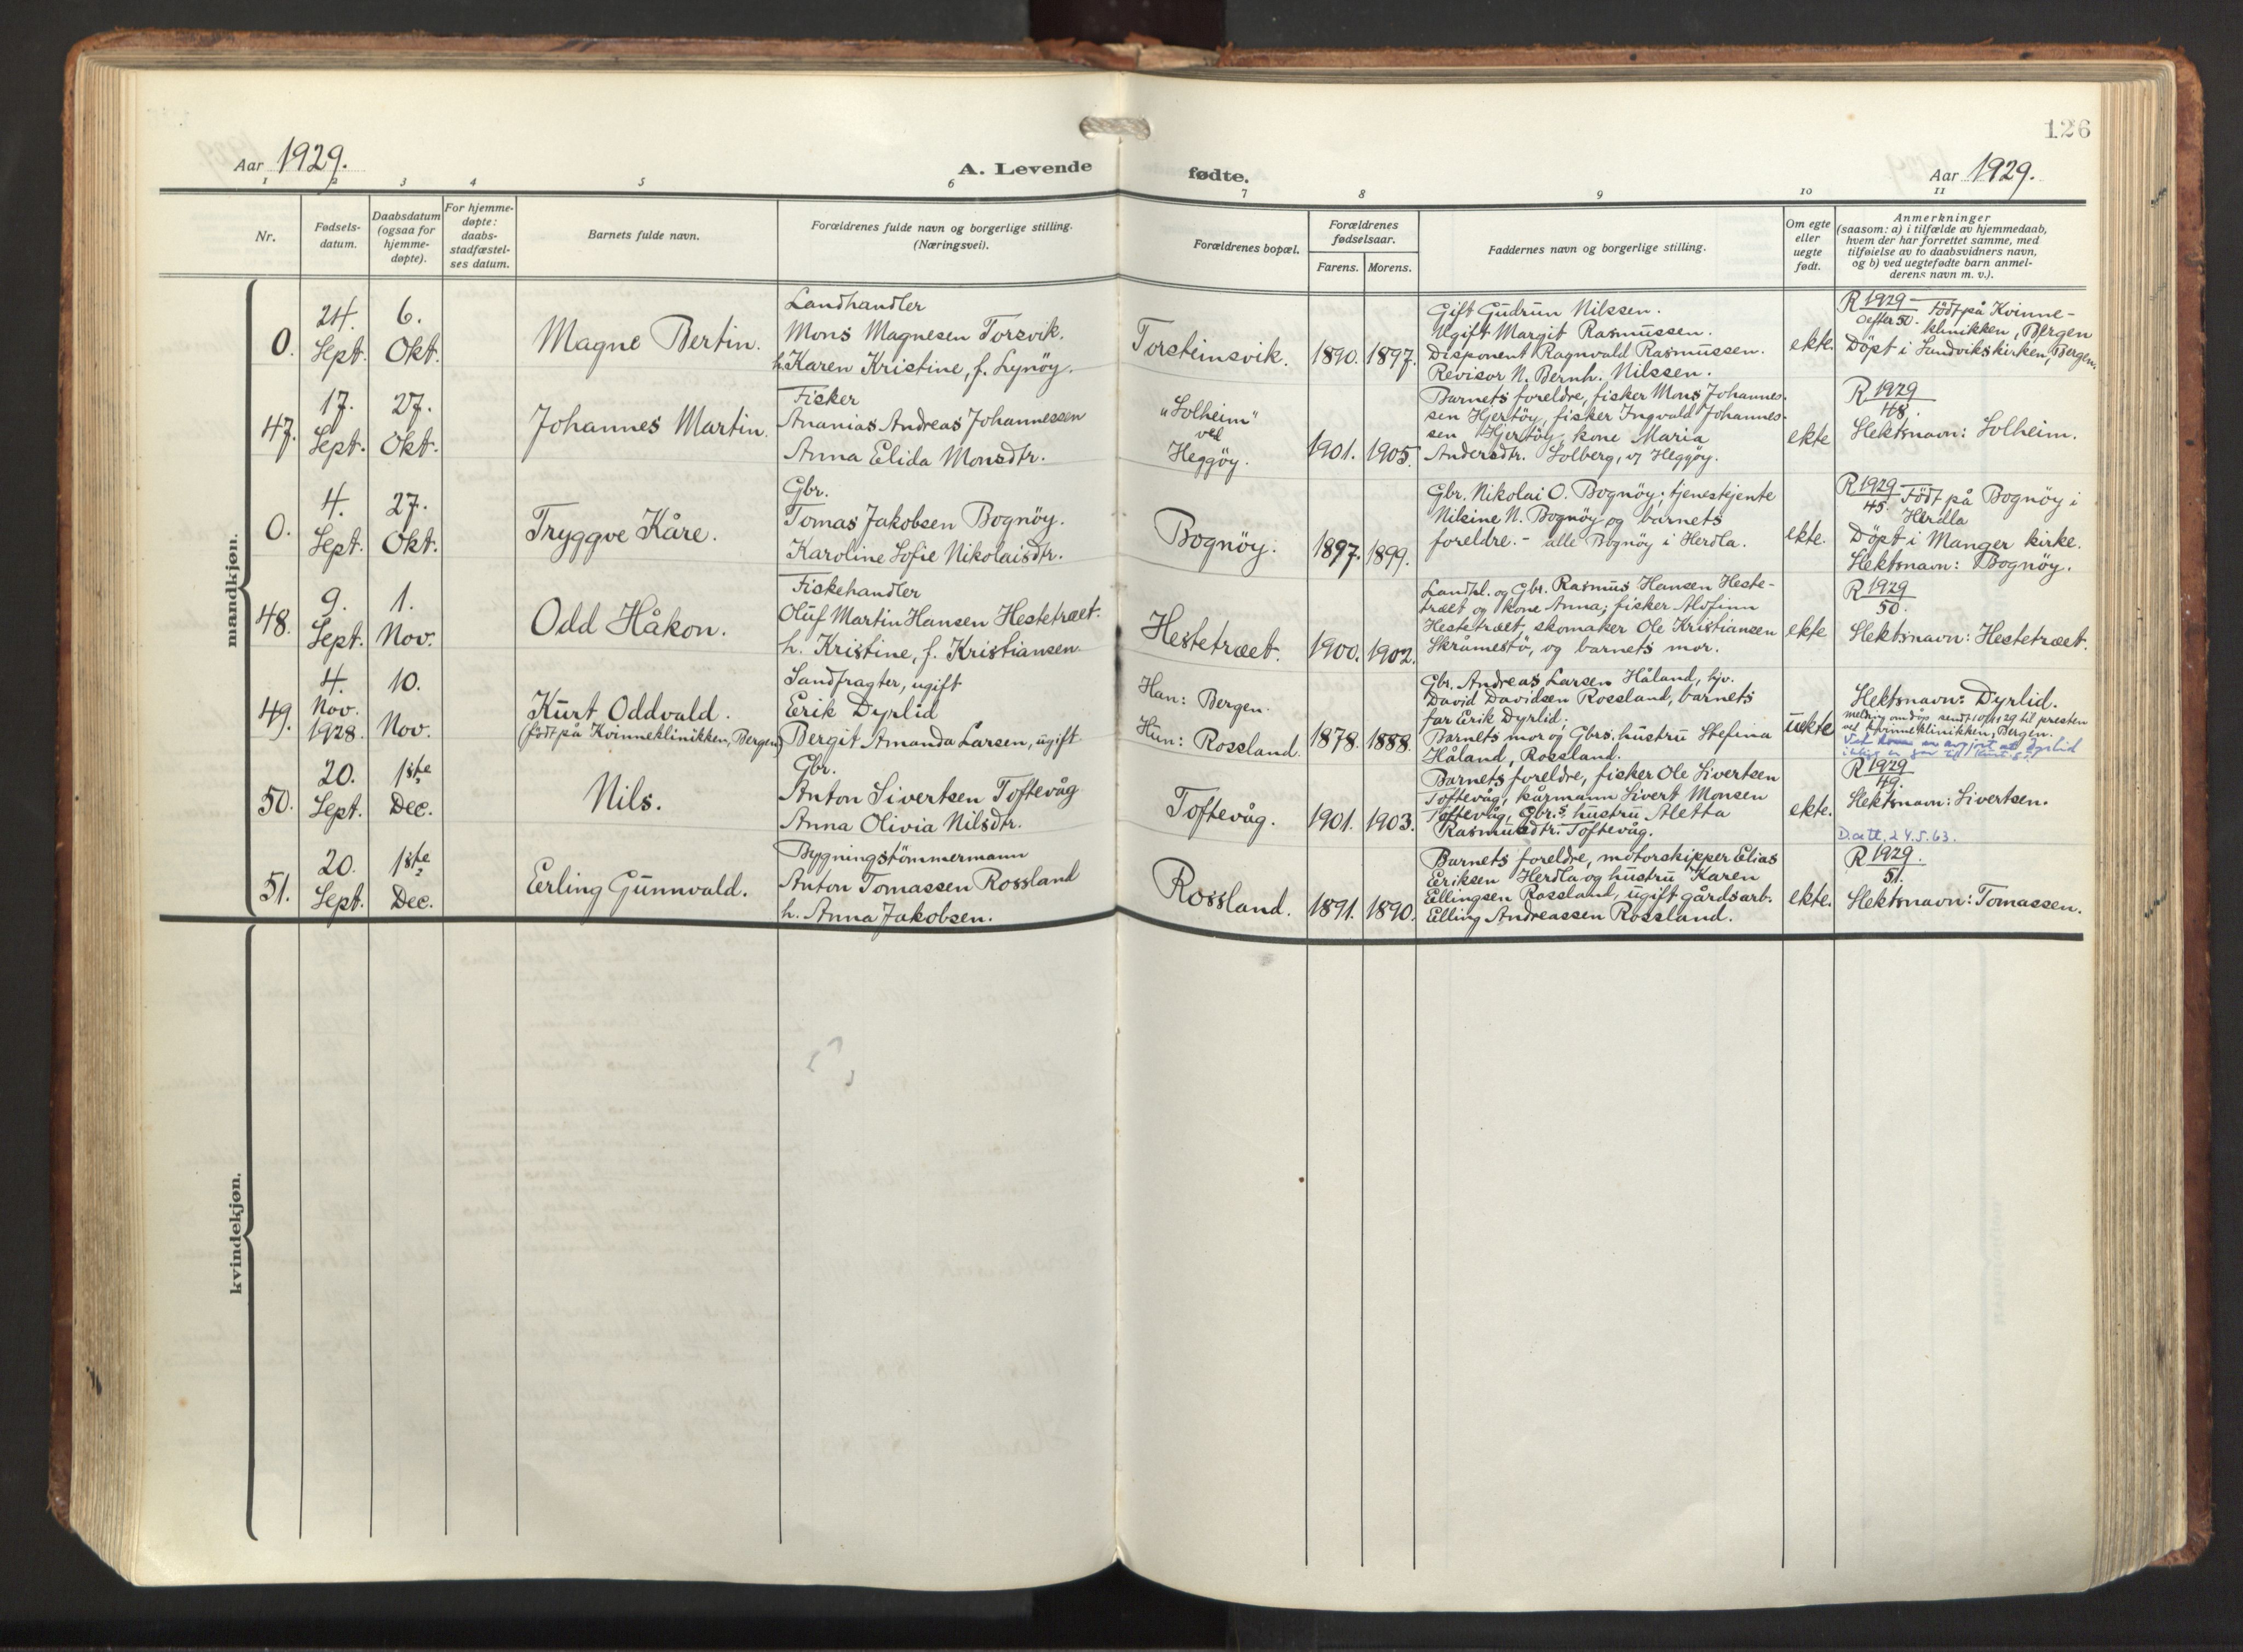 126
Aar 1929.
A. Levende fødte.
Aar 1929.
1 2 3 4 5 6 7 8 9 10 11
Nr.
Fødsels-
datum.
Daabsdatum
(ogsaa for
hjemme-
døpte).
For hjemme-
døpte:
daabs-
stadfæstel-
ses datum.
Barnets fulde navn.
Forældrenes fulde navn og borgerlige stilling.
(Næringsvei).
Forældrenes bopæl.
Forældrenes
fødselsaar.
Farens. Morens.
Faddernes navn og borgerlige stilling.
Om egte
eller
uegte
født.
Anmerkninger
(saasom: a) i tilfælde av hjemmedaab,
hvem der har forrettet samme, med
tilføielse av to daabsvidners navn,
og b) ved uegtefødte barn anmel-
derens navn m. v.).
mandkjøn.
0.
24.
Sept.
6.
Okt.
Magne Bertin.
Landhandler
Mons Magnesen Torsvik.
h. Karen Kristine, f. Lynöy.
Torsteinsvik.
1890. 1897.
Gift Gudrun Nilssen.
Ugift Margit Rasmussen.
Disponent Ragnvald Rasmussen.
Revisor N. Bernh. Nilssen.
ekte.
R 1929
0 efter 50. Født på Kvinne-
klinikken, Bergen
Döpt i Sandvikskirken, Bergen.
47.
17.
Sept.
27.
Okt.
Johannes Martin.
Fisker
Ananias Andreas Johannessen
Anna Elida Monsdtr.
"Solheim"
ved
Heggöy.
1901. 1905.
Barnets foreldre, fisker Mons Johannes-
sen Hjertöy, fisker Ingvald Johannes-
sen Hjertöy, kone Maria
Andersdtr. Solberg, v/ Heggöy.
ekte
R 1929
48.
Slektsnavn: Solheim.
0.
4.
Sept.
27.
Okt.
Tryggve Kåre.
Gbr.
Tomas Jakobsen Bognöy.
Karoline Sofie Nikolaisdtr.
Bognöy.
1897. 1899.
Gbr. Nikolai O. Bognöy; tjenestjente
Nilsine N. Bognöy og barnets
foreldre. - alle Bognöy i Herdla.
ekte.
R 1929
45. Født på Bognöy i
Herdla
Döpt i Manger kirke.
Slektsnavn: Bognöy.
48.
9.
Sept.
1.
Nov.
Odd Håkon.
Fiskehandler
Oluf Martin Hansen Hestetræet.
h. Kristine, f. Kristiansen.
Hestetræet.
1900. 1902.
Landhl. og Gbr. Rasmus Hansen Heste-
træet og kone Anna; fisker Alofinn
Hestetræet, skomaker Ole Kristiansen
Skråmestö, og barnets mor.
ekte
R 1929
50.
Slektsnavn: Hestetræet.
49.
4.
Nov.
1928.
10.
Nov.
Kurt Oddvald.
(født på Kvinneklinikken, Bergen)
Sandfragter, ugift
Erik Dyrlid
Bergit Amanda Larsen, ugift
Han: Bergen.
Hun: Rossland.
1878. 1888.
Gbr. Andreas Larsen Håland, hjv.
David Davidsen Rossland, barnets
far Erik Dyrlid;
Barnets mor og Gbrs. hustru Stefina
Håland, Rossland.
uekte
Slektsnavn: Dyrlid.
meldng om dåp sendt 10/11 29 til presten
ved Kvinneklinikken, Bergen.
50.
20.
Sept.
1ste
Dec.
Nils.
Gbr.
Anton Sivertsen Toftevåg
Anna Olivia Nilsdtr.
Toftevåg.
1901. 1903.
Barnets foreldre, fisker Ole Sivertsen
Toftevåg, kårmann Sivert Monsen
Toftevåg, Gbr.s hustru Aletta
Rasmusdtr. Toftevåg.
ekte.
R 1929
49.
Slektsnavn: Sivertsen.
D.att. 24.5.63.
51.
20.
Sept.
1ste
Dec.
Erling Gunnvald.
Bygningstömmermann
Anton Tomassen Rossland
h. Anna Jakobsen.
Rossland.
1891. 1890.
Barnets foreldre, motorskipper Elias
Eriksen Herdla og hustru Karen
Ellingsen Rossland, ugift gårdsarb.
Elling Andreassen Rossland.
ekte.
R 1929.
51.
Slektsnavn: Tomassen.
kvindekjøn.